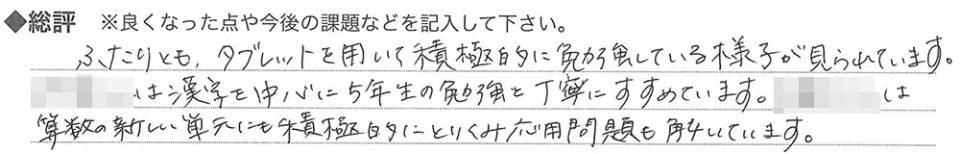 ◆総評 ※良くなった点や今後の課題などを記入して下さい。
ふたりとも、タブレットを用いて積極的に勉強している様子が見られています。
は漢字を中心に5年生の勉強を丁寧にすすめています。 は
算数の新しい単元にも積極的にとりくみ応用問題も解いています。